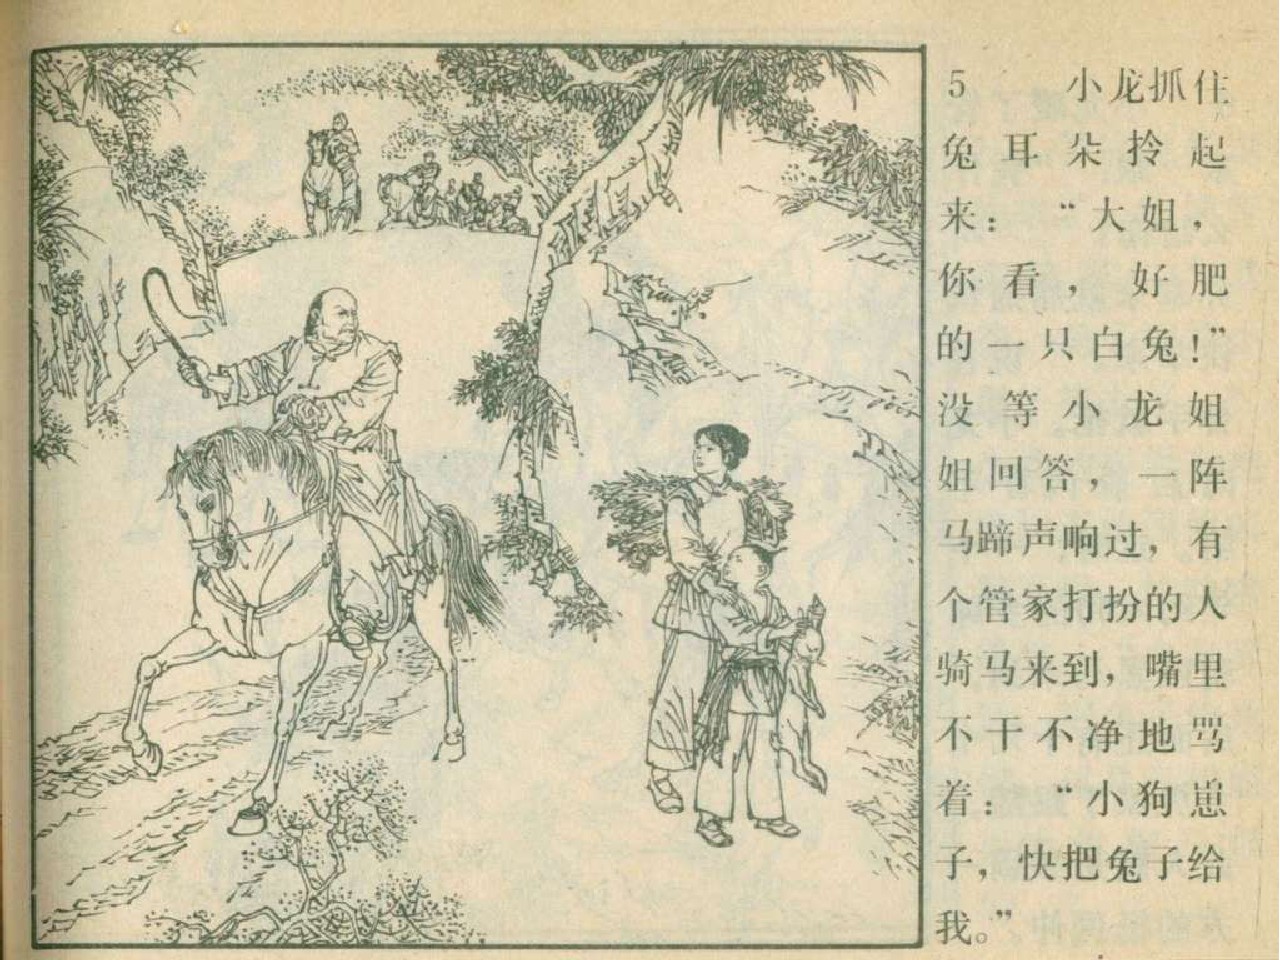 5 小龙抓住
兔耳朵拎起
来：“大姐，
你看，好肥
的一只白兔！”
没等小龙姐
姐回答，一阵
马蹄声响过，有
个管家打扮的人
骑马来到，嘴里
不干不净地骂
着：“小狗崽
子，快把兔子给
我。”